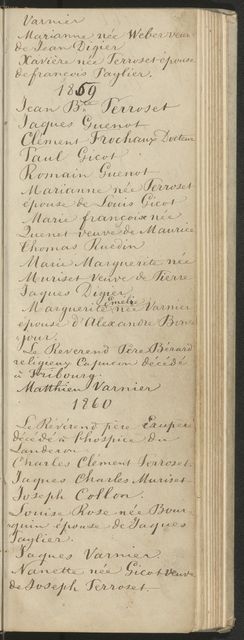 Varnier
Marianne née Weber veuve
de Jean Digier
Xavière née Perroset épouse
de françois Taglier.
1859
Jean Bte Perroset
Jaques Guenot
Clément Frochaux Docteur
Paul Gicot
Romain Guenot
Marianne née Perroset
épouse de Louis Gicot
Marie françoise née
Quenet veuve de Maurice
Thomas Ruedin
Marie Marguerite née
Muriset Veuve de Pierre
Jaques Digier
Amelie
Marguerite née Varnier
épouse d'Alexandre Bon
jour.
Le Reverend Père Bérard
religieux Capucin décédé
à Fribourg.
Matthieu Varnier
1860
Le Révérend père
décédé à l'hospice du
Landeron
Charles Clément Perroset.
Jaques Charles Muriset
Joseph Collon.
Louise Rose née Bour
quin épouse de Jaques
Taglier.
Jaques Varnier
Nanette née Gicot veuve
de Joseph Perroset.